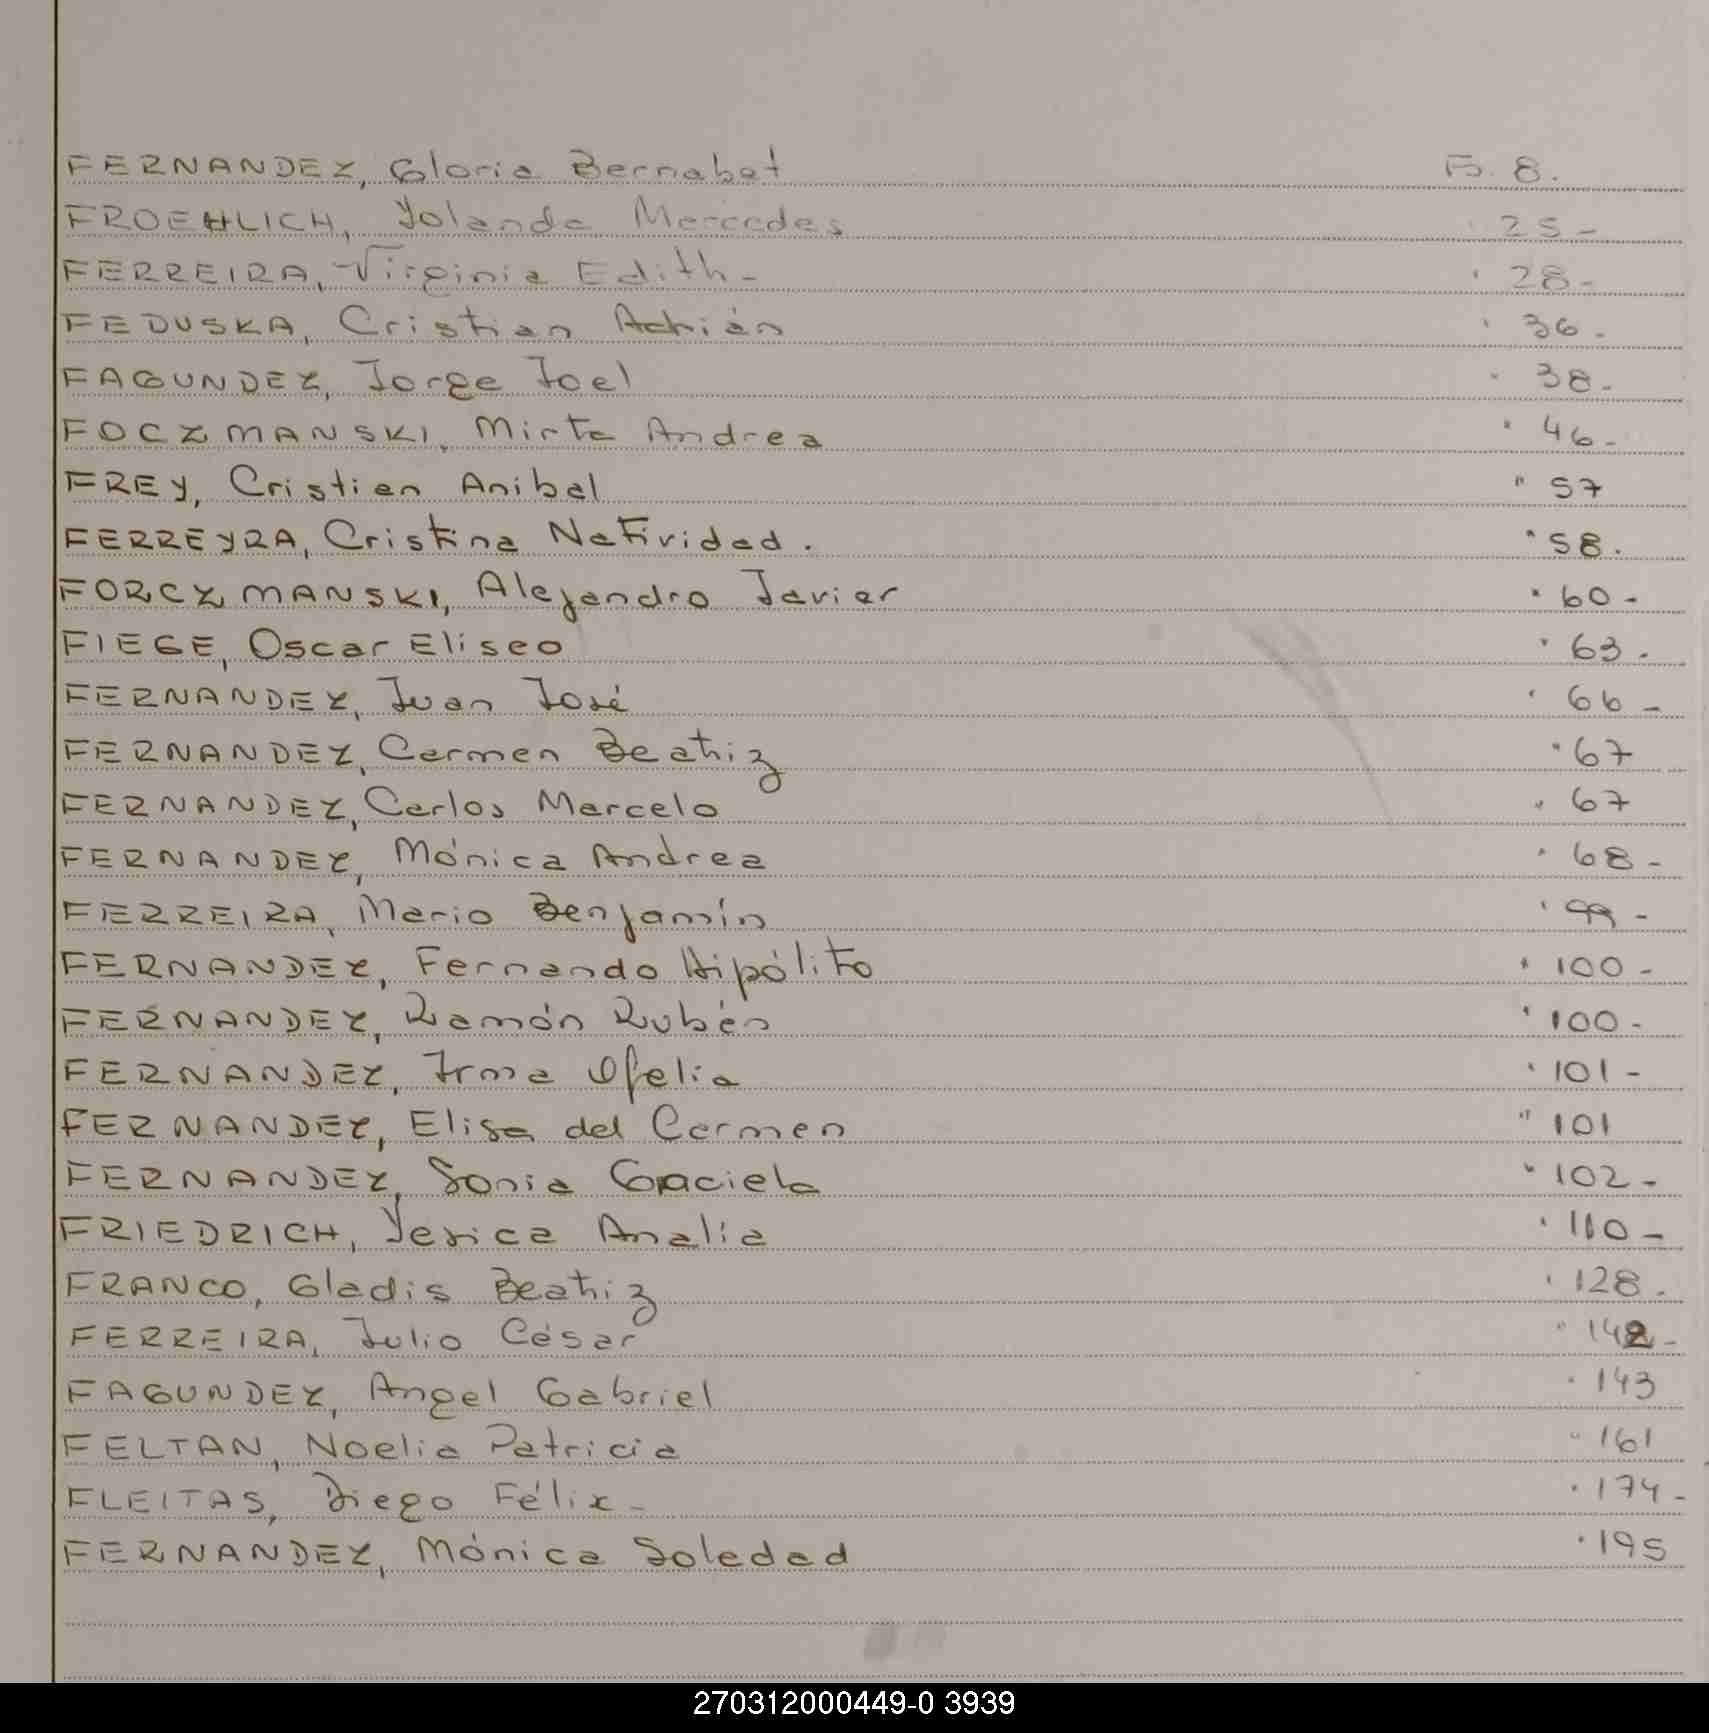 FERNANDEZ, Gloria Bernabet Fs. 8.
FROEHLICH, Yolanda Mercedes " 25-
FERREIRA, Virginia Edith- " 28-
FEDUSKA, Cristian Adrián " 36.
FAGUNDEZ, Jorge Joel " 38.
FOCZMANSKI, Mirta Andrea " 46-
FREY, Cristian Anibal " 57
FERREYRA, Cristina Natividad. " 58.
FORCZMANSKI, Alejandro Javier " 60-
FIEGE, Oscar Eliseo " 63.
FERNANDEZ, Juan José " 66-
FERNANDEZ, Carmen Beatriz " 67
FERNANDEZ, Carlos Marcelo " 67
FERNANDEZ, Mónica Andrea " 68-
FERREIRA, Mario Benjamín " 99-
FERNANDEZ, Fernando Hipólito " 100-
FERNANDEZ, Ramón Rubén " 100-
FERNANDEZ, Irma Ofelia " 101-
FERNANDEZ, Elisa del Carmen " 101
FERNANDEZ, Sonia Graciela " 102-
FRIEDRICH, Yesica Analia " 110-
FRANCO, Gladis Beatriz " 128.
FERREIRA, Julio César " 142-
FAGUNDEZ, Angel Gabriel " 143
FELTAN, Noelia Patricia " 161
FLEITAS, Diego Félix- " 174-
FERNANDEZ, Mónica Soledad " 195
270312000449-0 3939